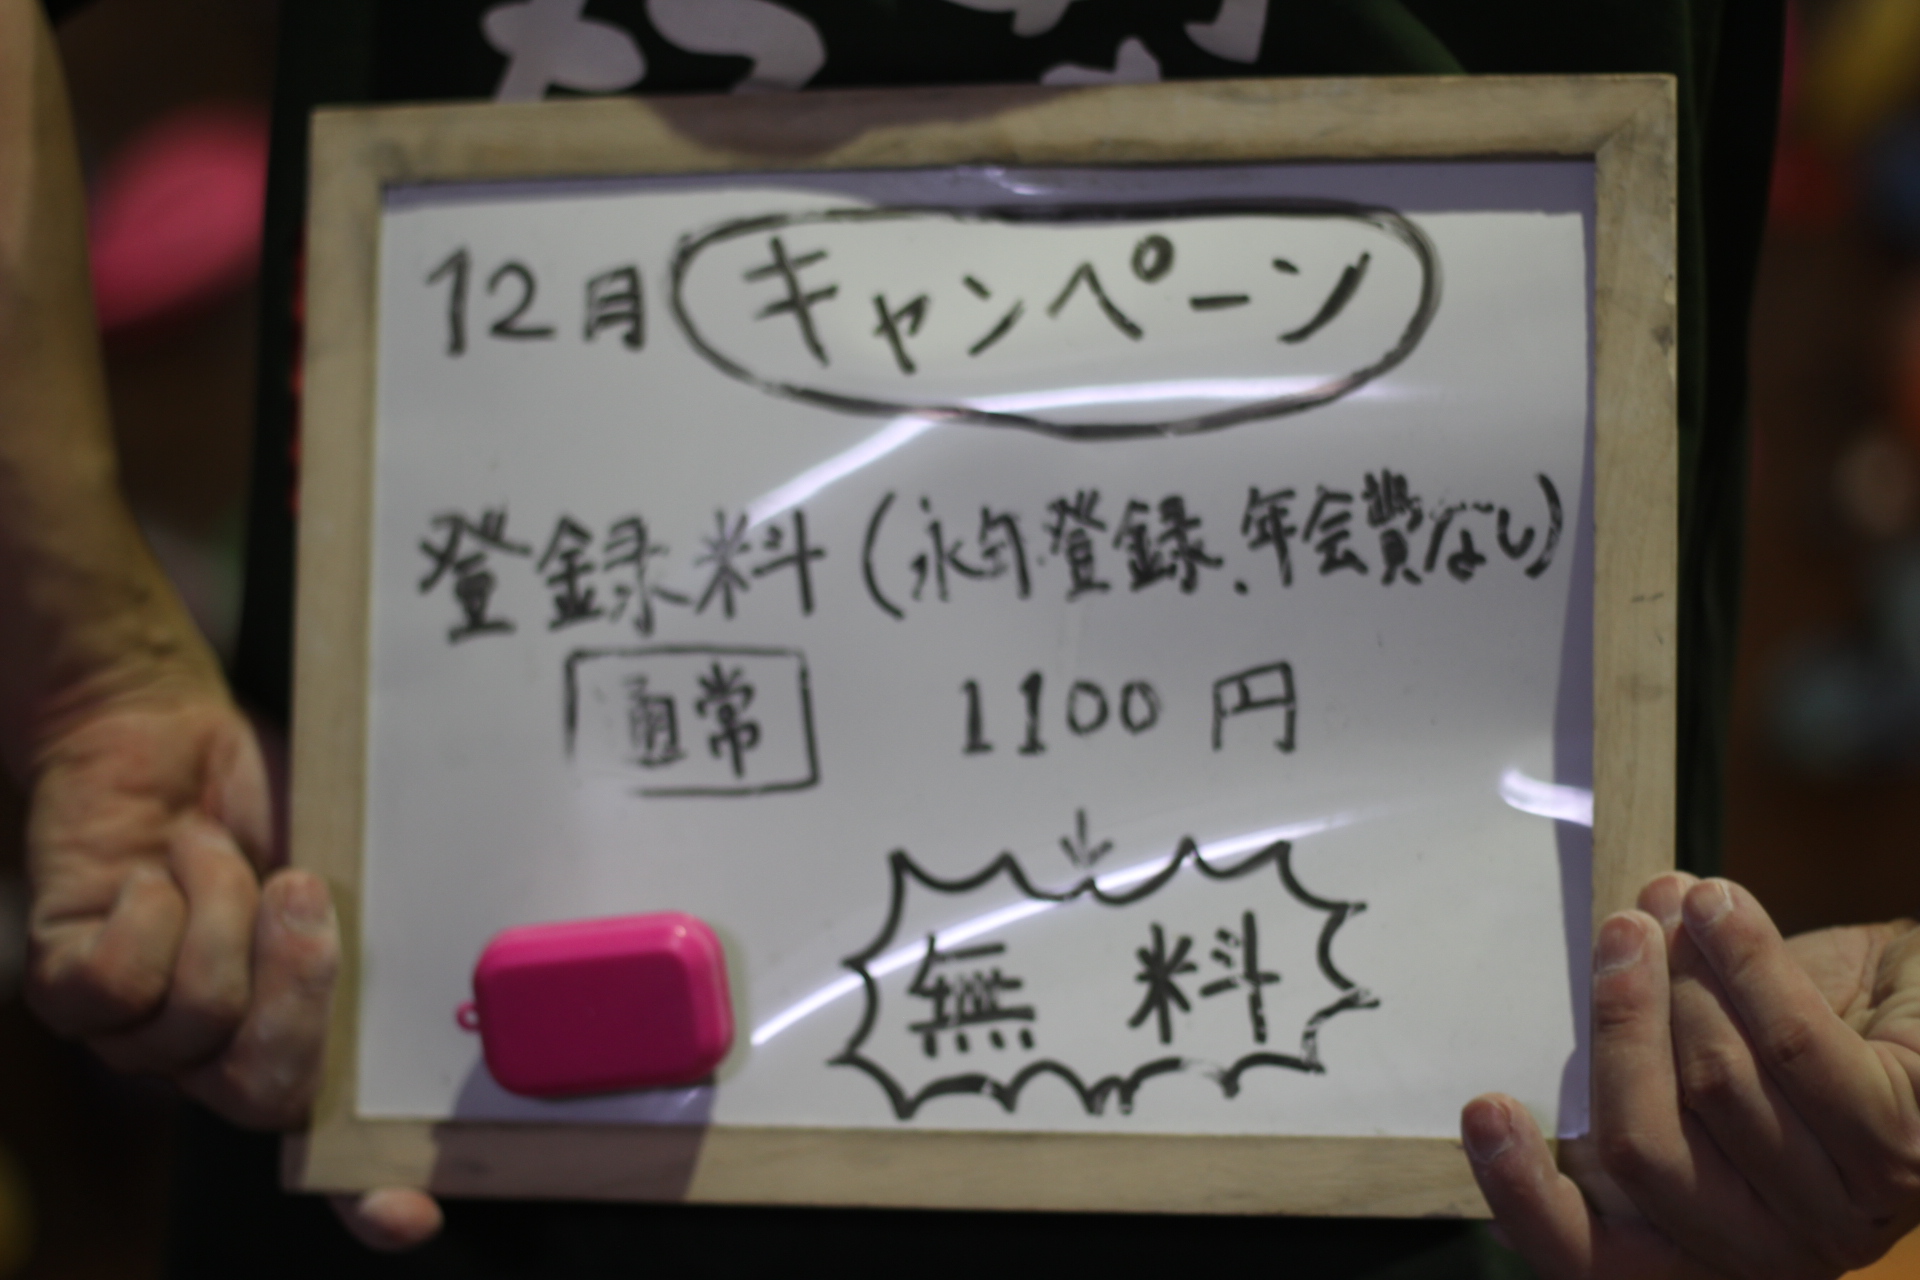 12月 キャンペーン
登録料(永年登録、年会費なし)
通常 1100円
無料